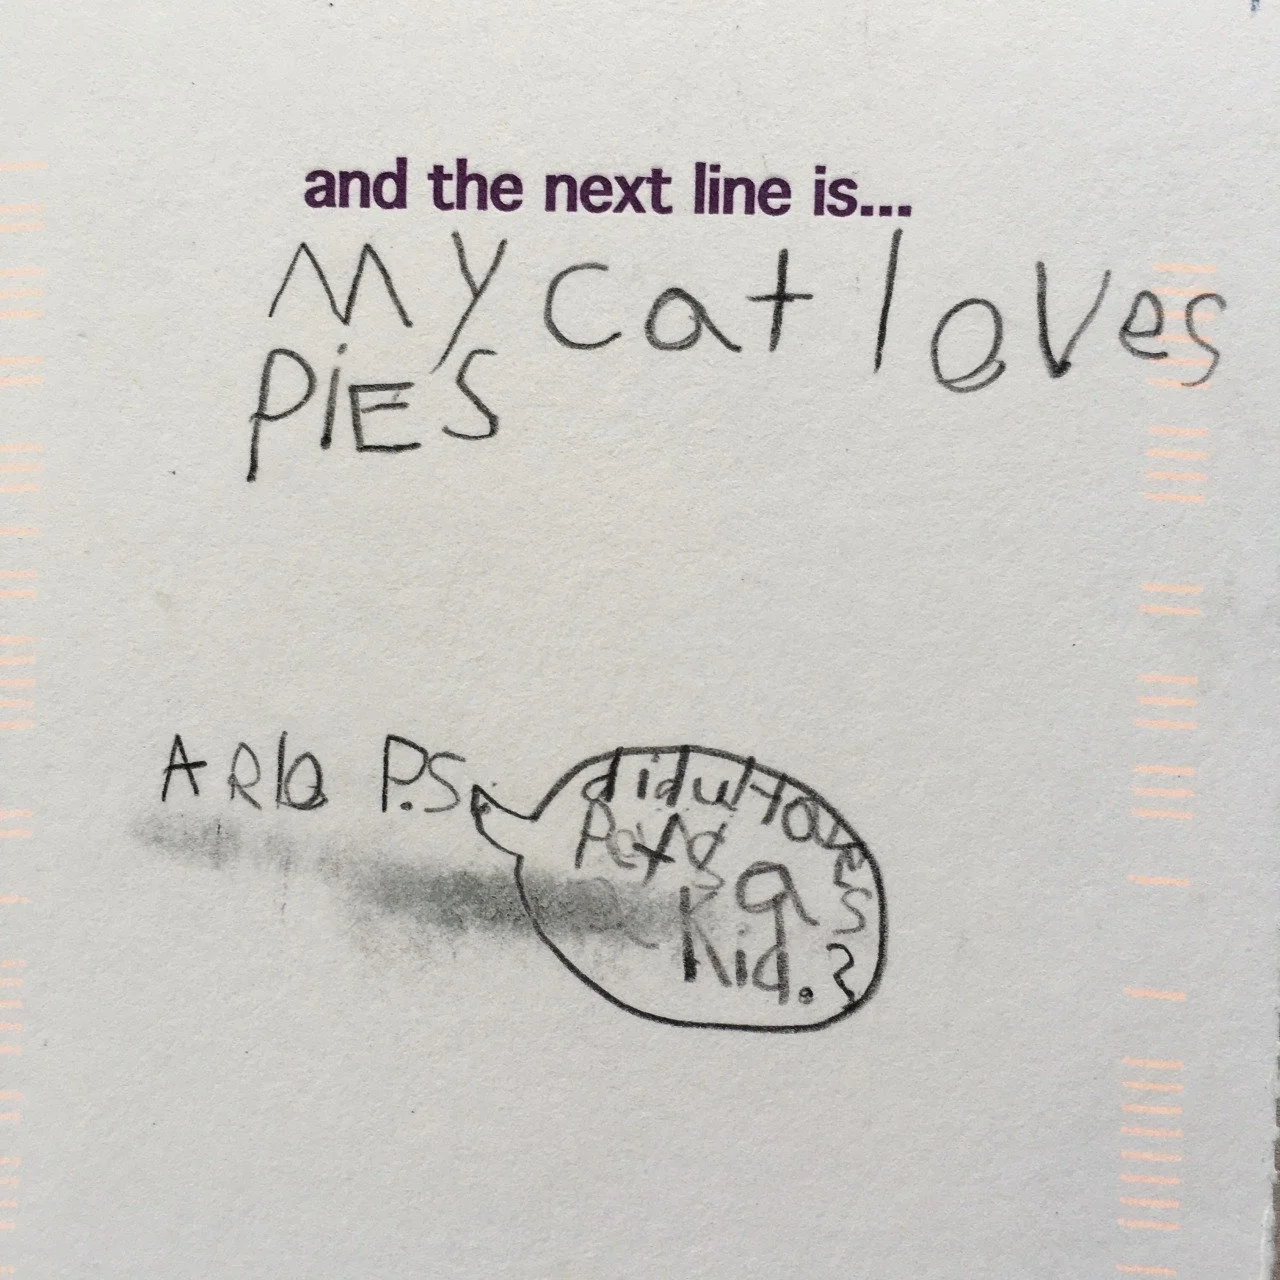 and the next line is...
My cat loves
PiES
ARlo P.S.
did u
loves
Pets
a
Kid.?